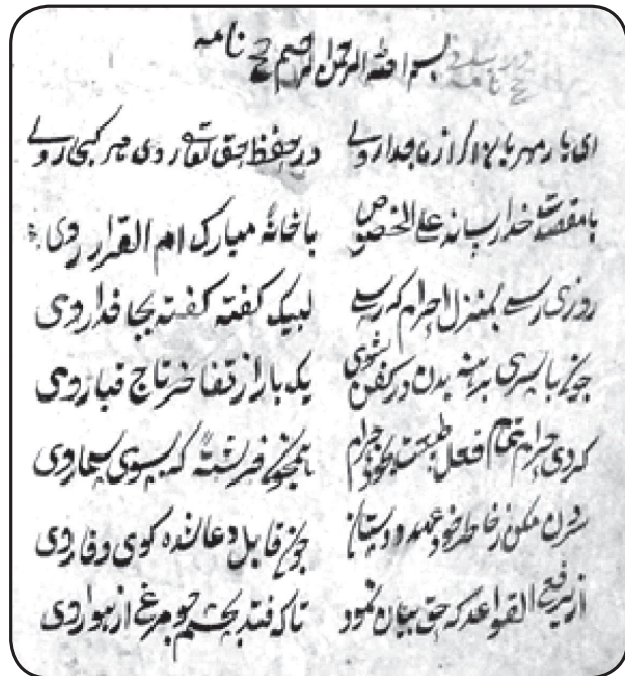 بسم الله الرحمن الرحیم حج نامه
ای یار مهربان اگر از ما جدا روی در حفظ حق تعالی روی هر کجا روی
با مقصدت خدا رساند علی الخصوص با خانهٔ مبارک ام القرا روی
روزی رسی بمنزل احرام که رسی لبیک گفته گفته بجا خدا روی
با سری برهنه بدن در کفن شوی یکبار از تفاخر تاج قبا روی
کردی حرام تمام فعل طبیعت بخود حرام همچون فرشته که بسوی سما روی
مکن ز خاطر خود عهد دوستان چون قابل دعا شده کوی وفا روی
از یرفع القواعد که حق بیان نمود تا کفته بچشم چو مرغ از هوا روی